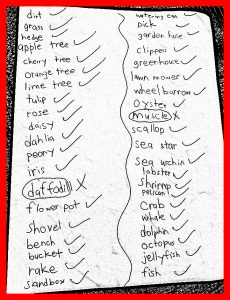 dirt
grass
hedge
apple tree
cherry tree
orange tree
lime tree
tulip
rose
daisy
dahlia
peony
iris
daffodil
flower pot
shovel
bench
bucket
rake
sandbox
watering can
pick
garden hose
clippers
greenhouse
lawn mower
wheel barrow
oyster
muscle
scallop
sea star
sea urchin
lobster
shrimp
pelican
crab
whale
dolphin
octopus
jellyfish
fish